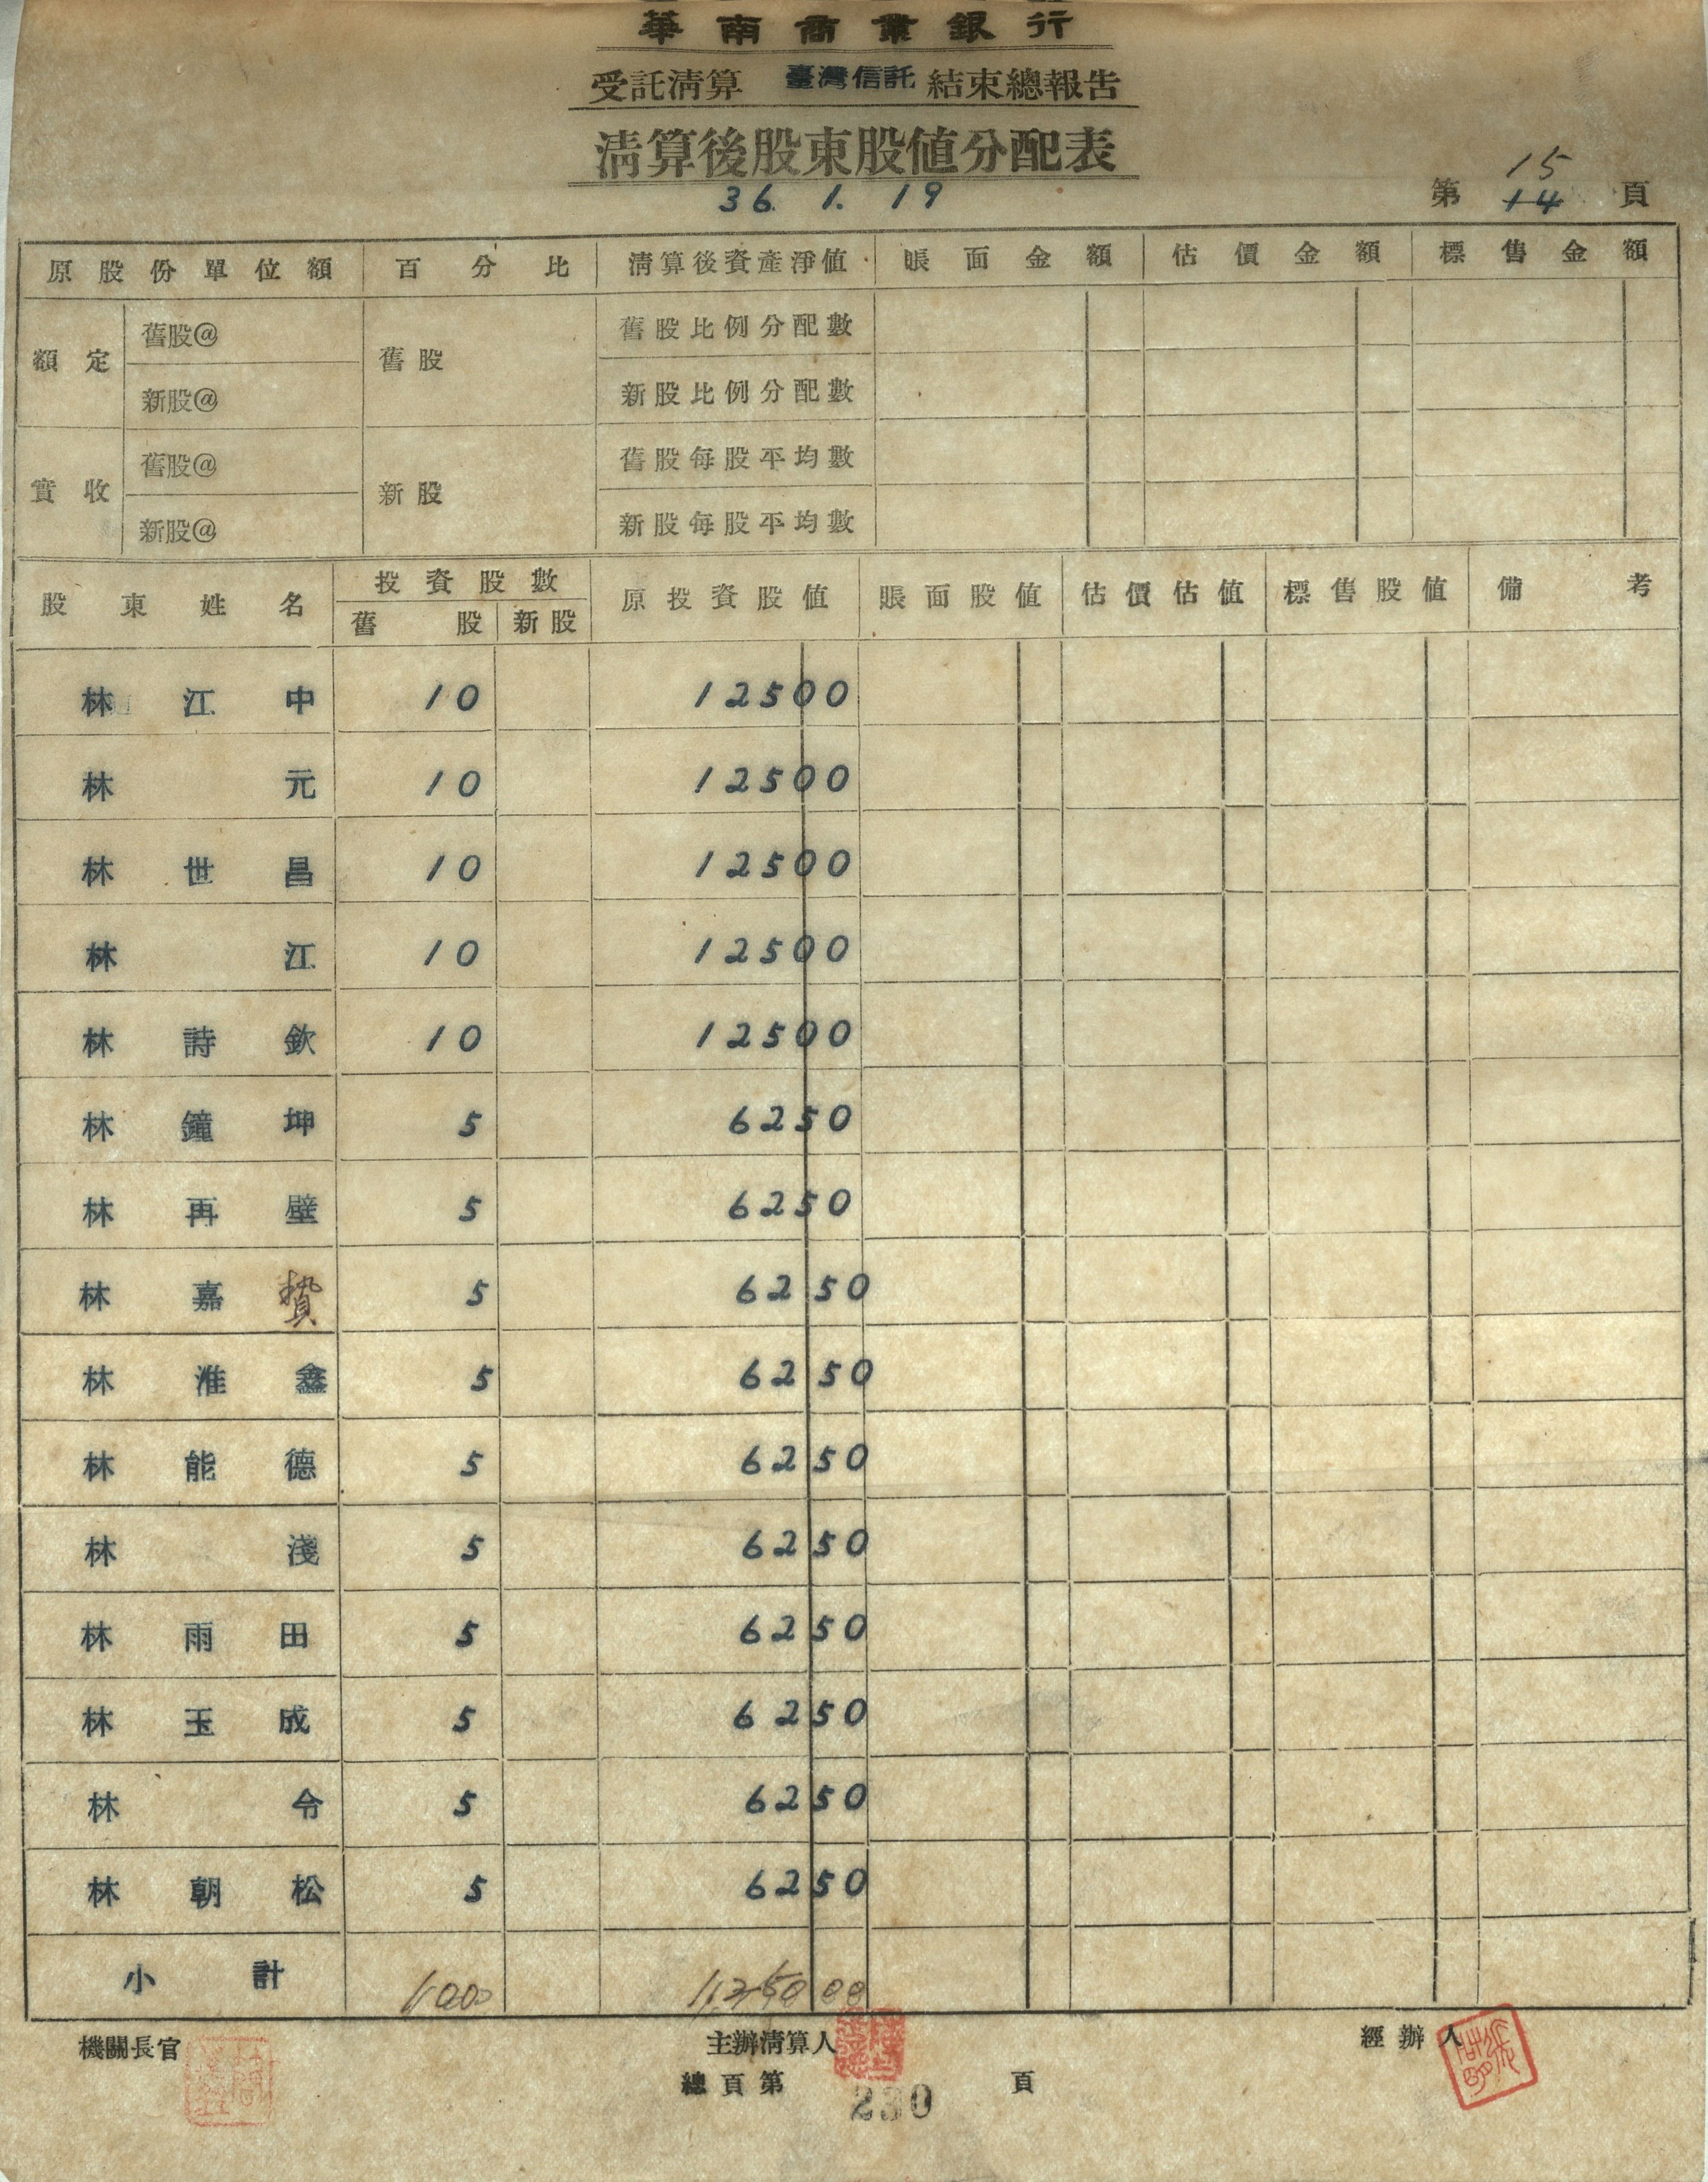 華南商業銀行
受託清算 臺灣信託 結束總報告
清算後股東股值分配表
36. 1. 19
第 15 14 頁
原股份單位額 百分比 清算後資產淨值 賬面金額 估價金額 標售金額
額定 舊股@ 舊股 舊股比例分配數
新股@ 新股比例分配數
實收 舊股@ 新股 舊股每股平均數
新股@ 新股每股平均數
股東姓名 投資股數 原投資股值 賬面股值 估價估值 標售股值 備考
舊股 新股
林江中 10 12500
林元 10 12500
林世昌 10 12500
林江 10 12500
林詩欽 10 12500
林鐘坤 5 6250
林再壁 5 6250
林嘉贄 5 6250
林淮鑫 5 6250
林能德 5 6250
林淺 5 6250
林雨田 5 6250
林玉成 5 6250
林令 5 6250
林朝松 5 6250
小計
機關長官 主辦清算人 經辦人
總頁第 230 頁